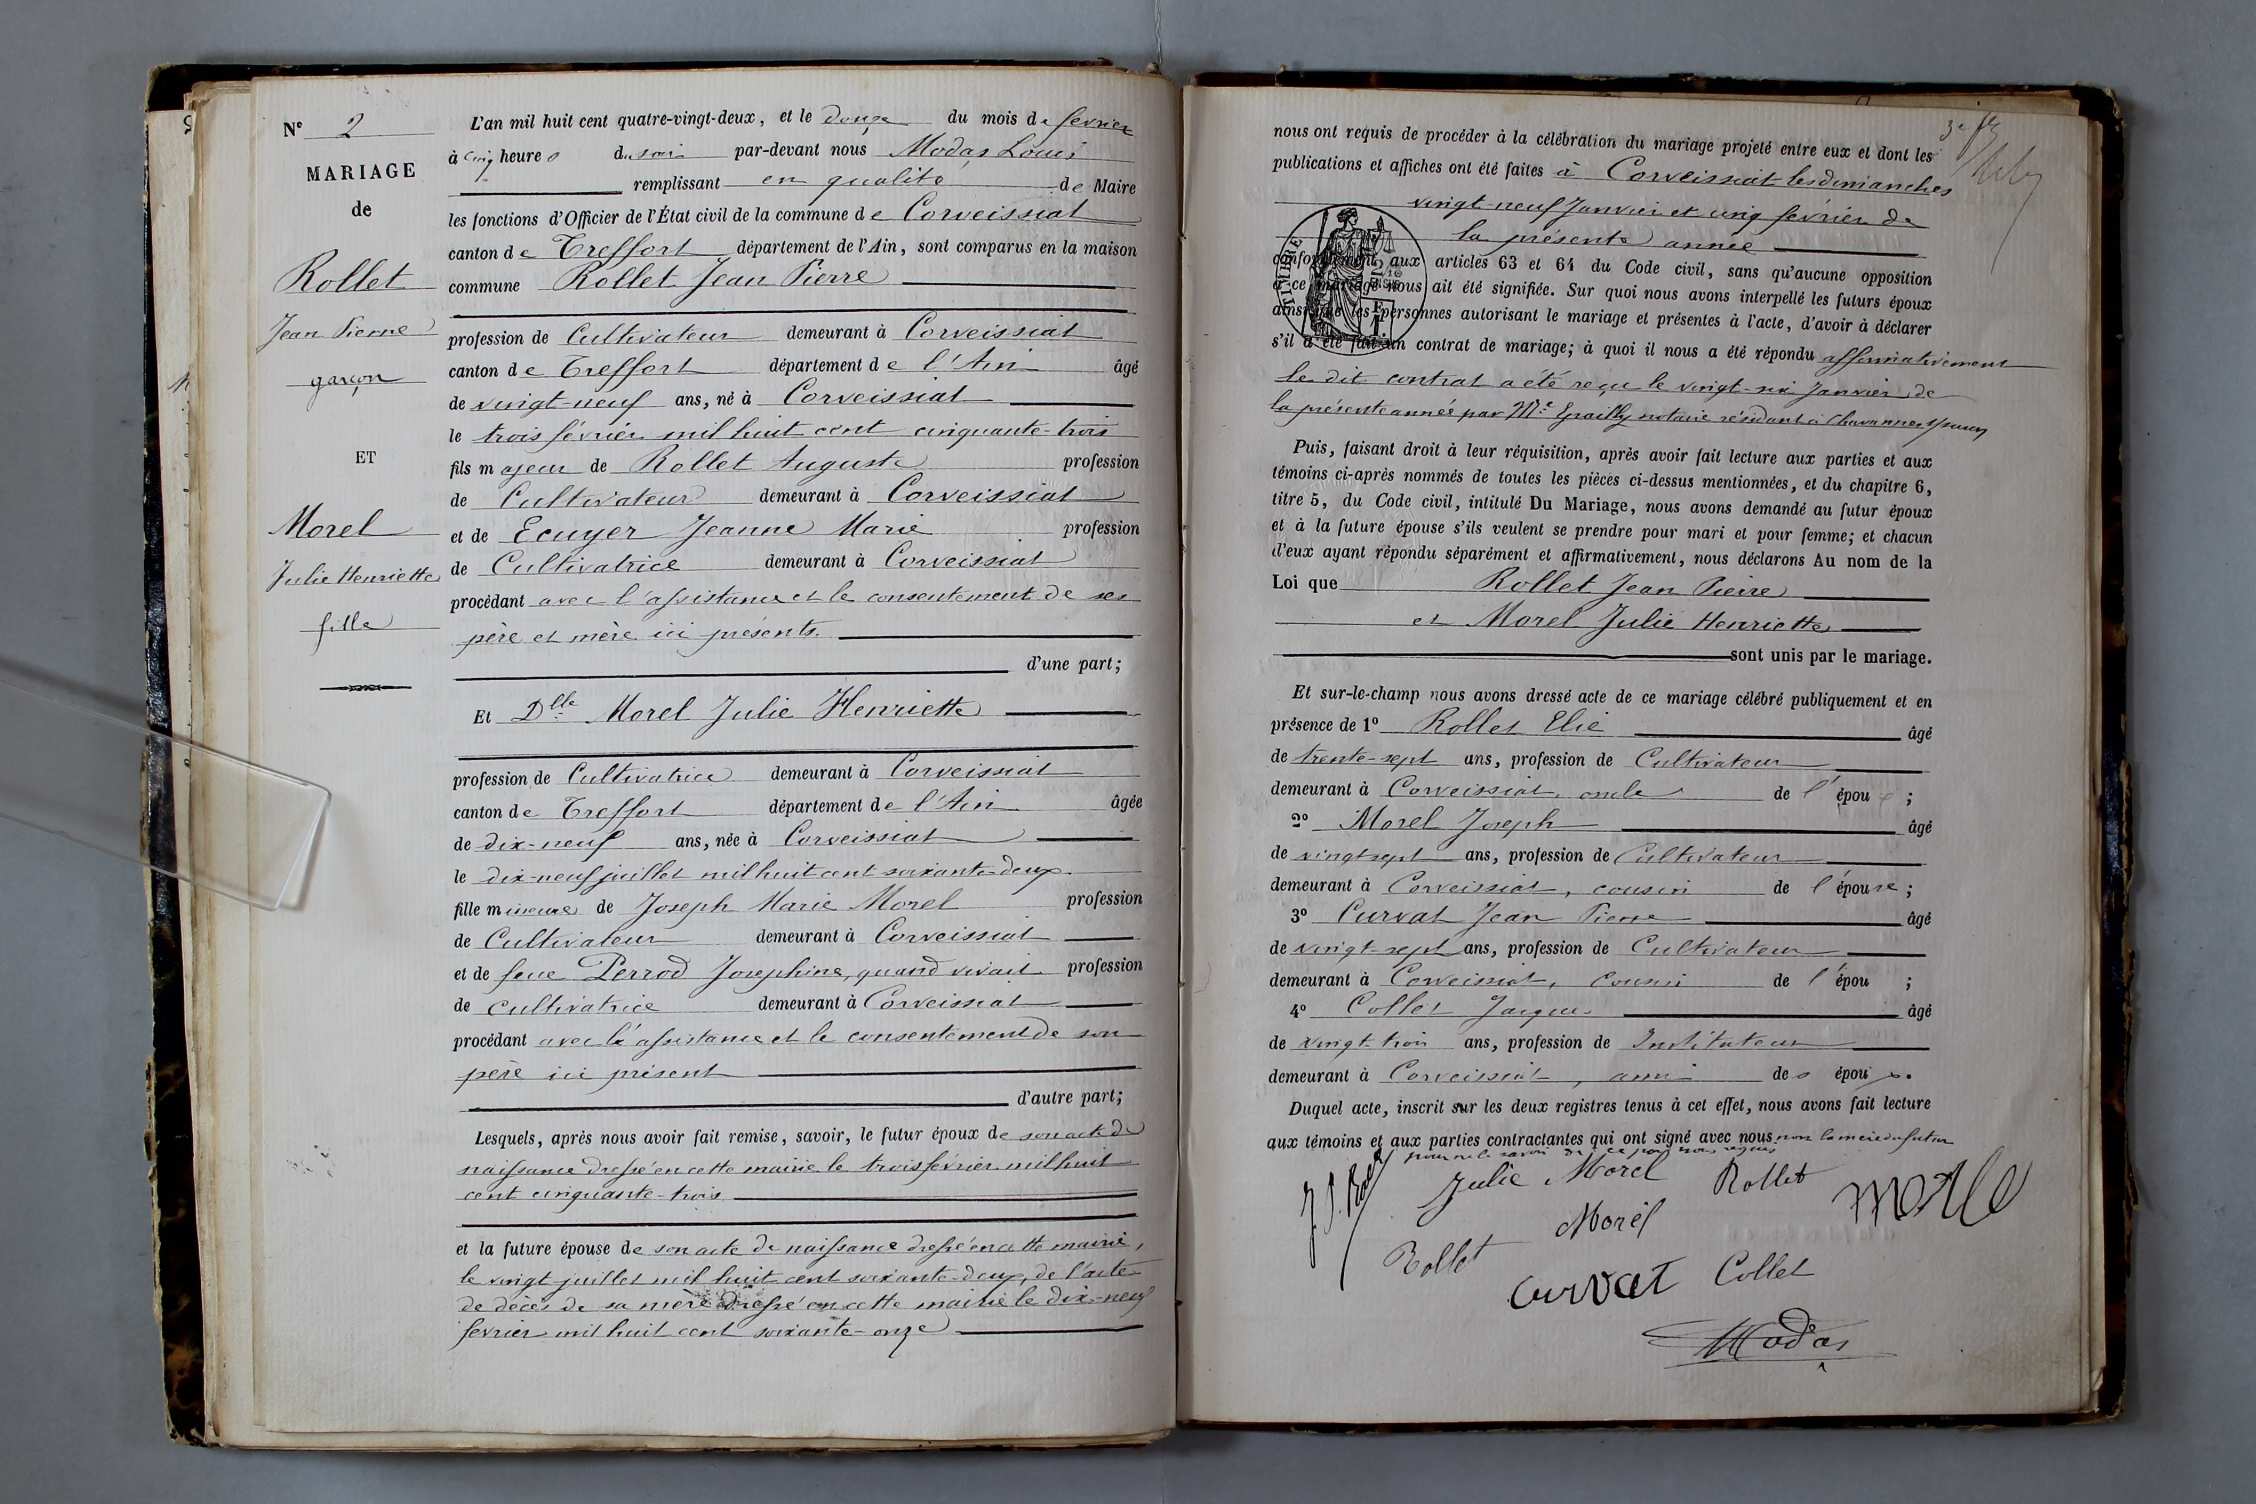 N° 2
MARIAGE
de
Rollet
Jean Pierre
garçon
ET
Morel
Julie Henriette
fille
L'an mil huit cent quatre-vingt-deux, et le douze du mois de février
à cinq heures du soir par-devant nous Modas Louis
remplissant en qualité de Maire
les fonctions d'Officier de l'État civil de la commune de Corveissiat
canton de Treffort département de l'Ain, sont comparus en la maison
commune Rollet Jean Pierre
profession de Cultivateur demeurant à Corveissiat
canton de Treffort département de l'Ain âgé
de vingt-neuf ans, né à Corveissiat
le trois février mil huit cent cinquante-trois
fils majeur de Rollet Auguste profession
de Cultivateur demeurant à Corveissiat
et de Ecuyer Jeanne Marie profession
de Cultivatrice demeurant à Corveissiat
procédant avec l'assistance et le consentement de ses
père et mère ici présents.
d'une part;
Et Dlle Morel Julie Henriette
profession de Cultivatrice demeurant à Corveissiat
canton de Treffort département de l'Ain âgée
de dix-neuf ans, née à Corveissiat
le dix-neuf juillet mil huit cent soixante-deux.
fille mineure de Joseph Marie Morel profession
de Cultivateur demeurant à Corveissiat
et de feue Perrod Josephine, quand vivait profession
de cultivatrice demeurant à Corveissiat
procédant avec l'assistance et le consentement de son
père ici présent
d'autre part;
Lesquels, après nous avoir fait remise, savoir, le futur époux de son acte de
naissance dressé en cette mairie le trois février mil huit
cent cinquante-trois
et la future épouse de son acte de naissance dressé en cette mairie,
le vingt juillet mil huit cent soixante-deux, de l'acte
de décès de sa mère dressé en cette mairie le dix-neuf
février mil huit cent soixante-onze
nous ont requis de procéder à la célébration du mariage projeté entre eux et dont les
publications et affiches ont été faites à Corveissiat les dimanches
vingt-neuf Janvier et cinq février de
la présente année
conformément aux articles 63 et 64 du Code civil, sans qu'aucune opposition
à ce mariage nous ait été signifiée. Sur quoi nous avons interpellé les futurs époux
ainsi que les personnes autorisant le mariage et présentes à l'acte, d'avoir à déclarer
s'il a été fait un contrat de mariage; à quoi il nous a été répondu affirmativement
le dit contrat a été reçu le vingt-six Janvier de
la présente année par Me notaire résidant à Chavannes
TIMBRE
Puis, faisant droit à leur réquisition, après avoir fait lecture aux parties et aux
témoins ci-après nommés de toutes les pièces ci-dessus mentionnées, et du chapitre 6,
titre 5, du Code civil, intitulé Du Mariage, nous avons demandé au futur époux
et à la future épouse s'ils veulent se prendre pour mari et pour femme; et chacun
d'eux ayant répondu séparément et affirmativement, nous déclarons Au nom de la
Loi que Rollet Jean Pierre
et Morel Julie Henriette
sont unis par le mariage.
Et sur-le-champ nous avons dressé acte de ce mariage célébré publiquement et en
présence de 1° Rollet Elie âgé
de trente-sept ans, profession de Cultivateur
demeurant à Corveissiat, oncle de l'épou ;
2° Morel Joseph âgé
de vingt sept ans, profession de Cultivateur
demeurant à Corveissiat, cousin de l'épouse;
3° Curvat Jean Pierre âgé
de vingt-sept ans, profession de Cultivateur
demeurant à Corveissiat, cousin de l'épou ;
4° Collet Jacques âgé
de vingt-trois ans, profession de Instituteur
demeurant à Corveissiat, ami des époux.
Duquel acte, inscrit sur les deux registres tenus à cet effet, nous avons fait lecture
aux témoins et aux parties contractantes qui ont signé avec nous non la mère du futur
pour ne le savoir de ce par nous requis
Julie Morel Rollet
Morel
Rollet
Curvat Collet
Modas